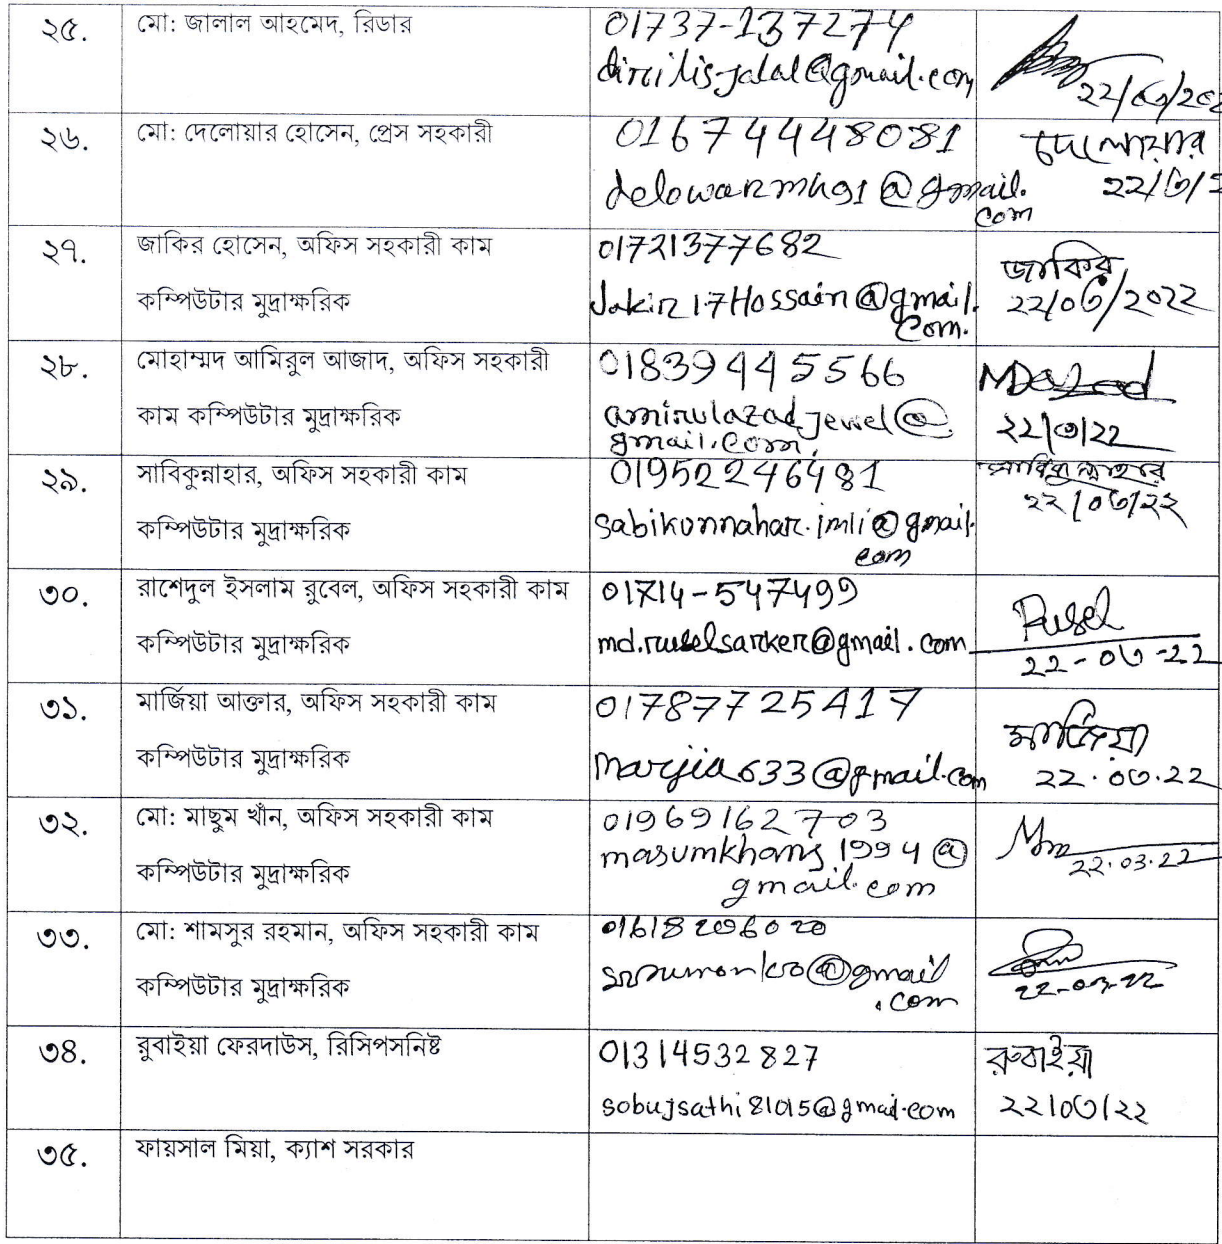 ২৫.
মো: জালাল আহমেদ, রিডার
01737-137274
22/03/202
২৬.
মো: দেলোয়ার হোসেন, প্রেস সহকারী
01674448081
delowarmh91@gmail.
com
দেলোয়ার
22/৩/2
২৭.
জাকির হোসেন, অফিস সহকারী কাম
কম্পিউটার মুদ্রাক্ষরিক
01721377682
Jakir17Hossain@gmail.
Com.
জাকির
22/০৩/2022
২৮.
মোহাম্মদ আমিরুল আজাদ, অফিস সহকারী
কাম কম্পিউটার মুদ্রাক্ষরিক
01839445566
amirulazadjewel@
gmail.com,
MDAzad
২২/৩/22
২৯.
সাবিকুন্নাহার, অফিস সহকারী কাম
কম্পিউটার মুদ্রাক্ষরিক
01952246481
sabikunnahar.imli@gmail.
com
সাবিকুন্নাহার
২২/০৩/২২
৩০.
রাশেদুল ইসলাম রুবেল, অফিস সহকারী কাম
কম্পিউটার মুদ্রাক্ষরিক
01714-547499
md.ruselsarker@gmail.com
Rusel
22-০৩-22
৩১.
মার্জিয়া আক্তার, অফিস সহকারী কাম
কম্পিউটার মুদ্রাক্ষরিক
01787725417
marjia633@gmail.com
মার্জিয়া
22.০৩.22
৩২.
মো: মাছুম খাঁন, অফিস সহকারী কাম
কম্পিউটার মুদ্রাক্ষরিক
01969162703
masumkhans1994@
gmail.com
22.03.22
৩৩.
মো: শামসুর রহমান, অফিস সহকারী কাম
কম্পিউটার মুদ্রাক্ষরিক
@gmail
.com
22-03-22
৩৪.
রুবাইয়া ফেরদাউস, রিসিপসনিষ্ট
01314532827
sobujsathi81015@gmail.com
রুবাইয়া
২২/০৩/২২
৩৫.
ফায়সাল মিয়া, ক্যাশ সরকার